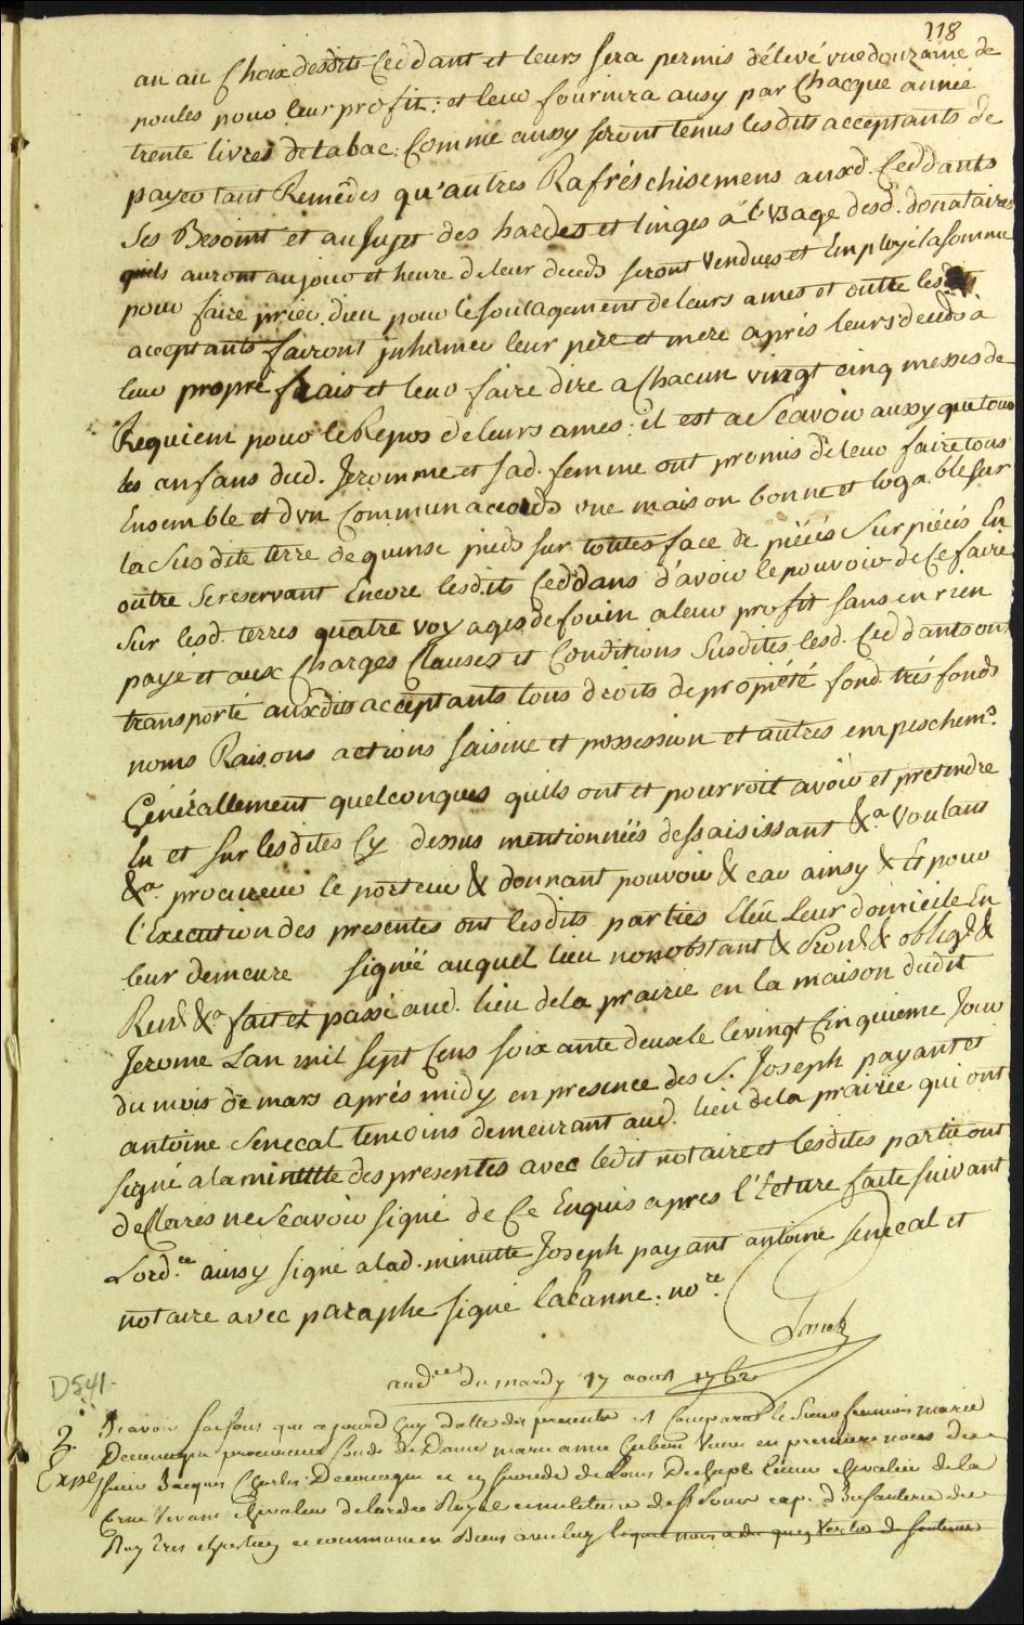 118
an au Choix desdits Ceddant et leurs sera permis d'élevé une douzaine de
poules pour leur profit: et leur fournira ausy par Chacque année
trente livres de tabac. Comme aussy seront tenus lesdits acceptants de
payer tant Remêdes qu'autres Rafréschisemens auxd. Ceddants
Ses Besoint et au sujet des hardes et linges à l'usage desd. donataires
quils auront au jour et heure de leur deceds seront Vendues et Employé la somme
pour faire prier dieu pour le soulagement de leurs ames et outre lesdits
acceptants fairont inhumer leur père et mere aprés leurs deceds à
leur propre frais et leur faire dire a Chacun vingt cinq messes de
Requiem pour le Repos de leurs ames: il est a Scavoir aussy que tous
les anfans dud. Jeromme et sad. femme ont promis de leur faire tous
Ensemble et d'vn Commun accords vne maison bonne et logable sur
la Susdite terre de quinse pieds sur toutes face de piéces Sur piéces En
outre Sereservant Encore lesdits Ceddans d'avoir le pouvoir de Ce faire
Sur lesd. terres quatre voyages de fouin a leur profit sans en rien
payé et aux Charges Clauses et Conditions Susdites lesd. Ceddants ont
transporté auxdits acceptants tous droits de propiété fond. trés fonds
noms Raisons actions saisine et possession et autres empeschems.
Génerallement quelconques quils ont et pourroit avoir et pretendre
En et sur lesdites Cy dessus mentionnéés dessaisissant &a. Voulant
&a. procureur le porteur & donnant pouvoir & car ainsy & Et pour
l'Execution des presentes ont lesdits parties Eleu Leur domicile En
leur demeure signéé auquel lieu nonobstant & Prom. & oblig. &
Ren. &a fait et passé aud. lieu de la prairie en la maison dudit
Jerome Lan mil sept Cens soixante deux le vingt Cinquieme Jour
du mois de mars aprés midy en presence des S. Joseph payant et
antoine Senecal temoins demeurant aud. lieu de la prairiee qui ont
signé a la minutte des presentes avec ledit notaire et lesdites partie ont
declares ne Scavoir signé de Ce Enquis apres l'Ecture faite suivant
Lord.ce ainsy signé a lad. minutte Joseph payant antoine senecal et
notaire avec paraphe signé Lalanne. no.re
audce du mardy 17 aoust 1762
D541-
2.
Exp.
Scavoir faisons que ce jourd'huy datte des presentes est Comparut le Sieur francois marie
Decouagne procureur fondé de Dame marie anne Veuve en premiere noces de
sieur Jacques Charles Decouagne et en seconde de Louis Dechapt sieur chevalier de la
Corne Vivant Chevalier de lordre Royal et militaire de St Louis cap. d'Infanterie du
Roy Tres chretien et commune en Biens avec luy lequel nous a dit